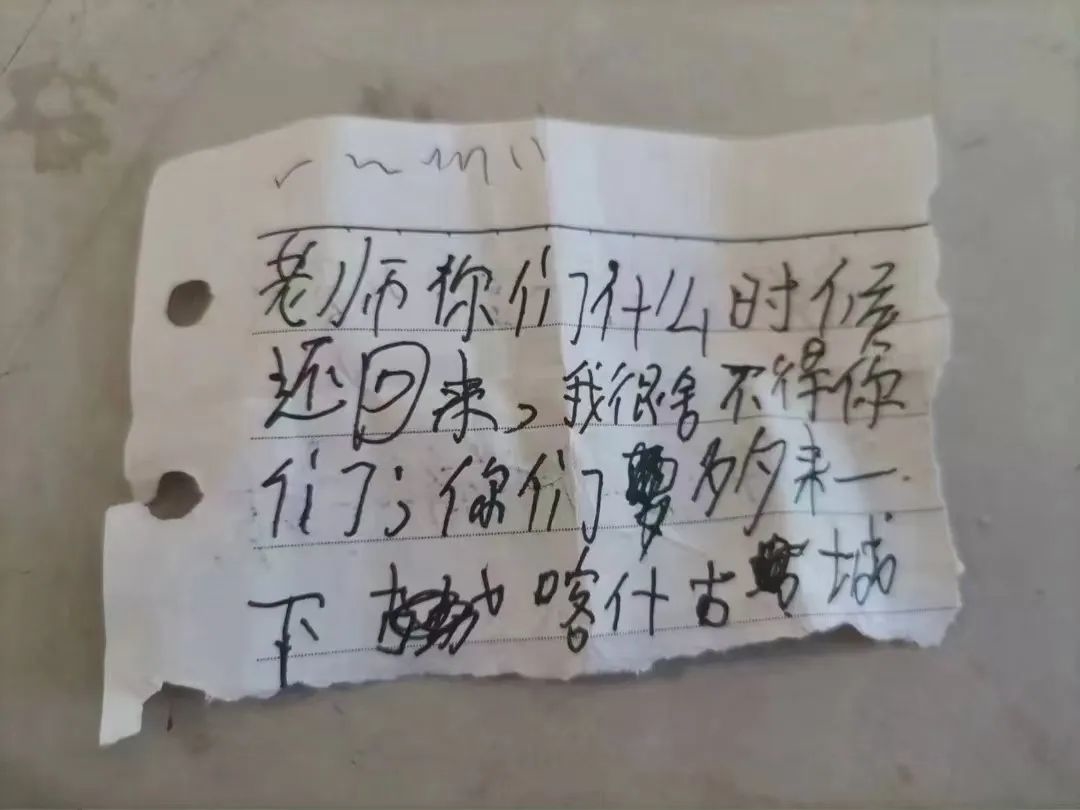 老师你们什么时候
还回来,我很舍不得你
们了;你们要多多来一
下 喀什古城